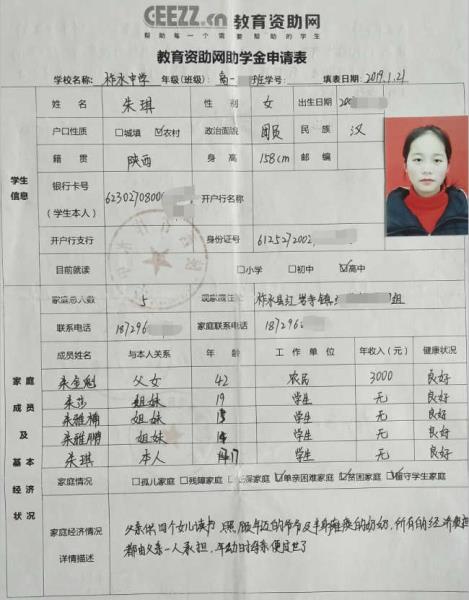 CEEZZ.cn 教育资助网
帮助每一个需要帮助的学生
教育资助网助学金申请表
学校名称: 柞水中学 年级(班级): 高一 班 学号: 填表日期: 2019.1.21
学生信息
姓名 朱琪 性别 女 出生日期 200
户口性质 □城镇 ☑农村 政治面貌 团员 民族 汉
籍贯 陕西 身高 158cm 邮编
银行卡号 (学生本人) 623027080 开户行名称
开户行支行 身份证号 612527200
目前就读 □小学 □初中 ☑高中
家庭成员及基本经济状况
家庭总人数 5 现家庭住址 柞水县红岩寺镇 组
联系电话 187296 家庭联系电话 187296
成员姓名 与本人关系 年龄 工作单位 年收入(元) 健康状况
父女 42 农民 3000 良好
朱莎 姐妹 19 学生 无 良好
朱雅楠 姐妹 学生 无 良好
朱雅鹏 姐妹 学生 无 良好
朱琪 本人 17 学生 无 良好
家庭情况 □孤儿家庭 □残障家庭 保家庭 ☑单亲困难家庭 ☑贫困家庭 ☑留守学生家庭
家庭经济情况详情描述
父亲供四个女儿读书,照顾年迈的爷爷及半身瘫痪的奶奶,所有的经济重担
都由父亲一人承担,年幼时母亲便过世了